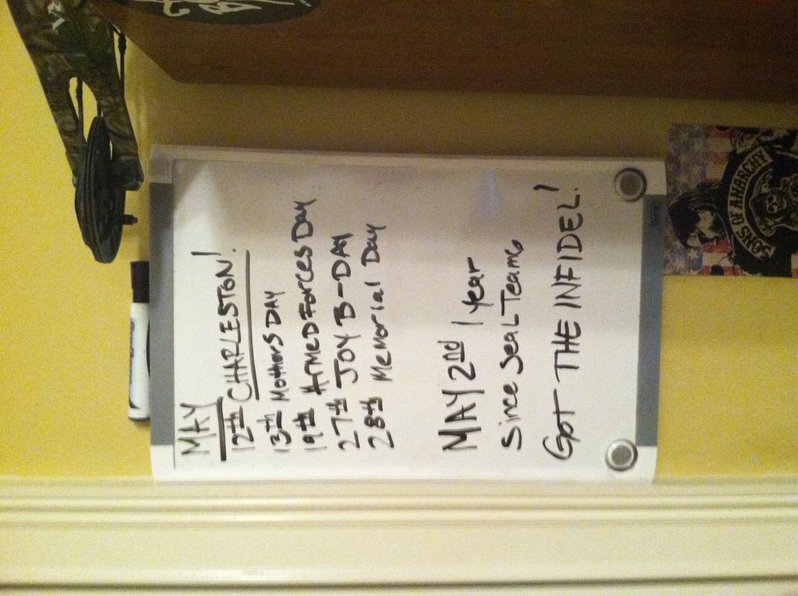 MAY
12th CHARLESTON!
13th MOTHERS DAY
19th ARMED FORCES DAY
27th JOY B-DAY
28th MEMORIAL DAY
MAY 2nd 1 year
Since SEAL Teams
GOT THE INFIDEL!
SONS OF ANARCHY